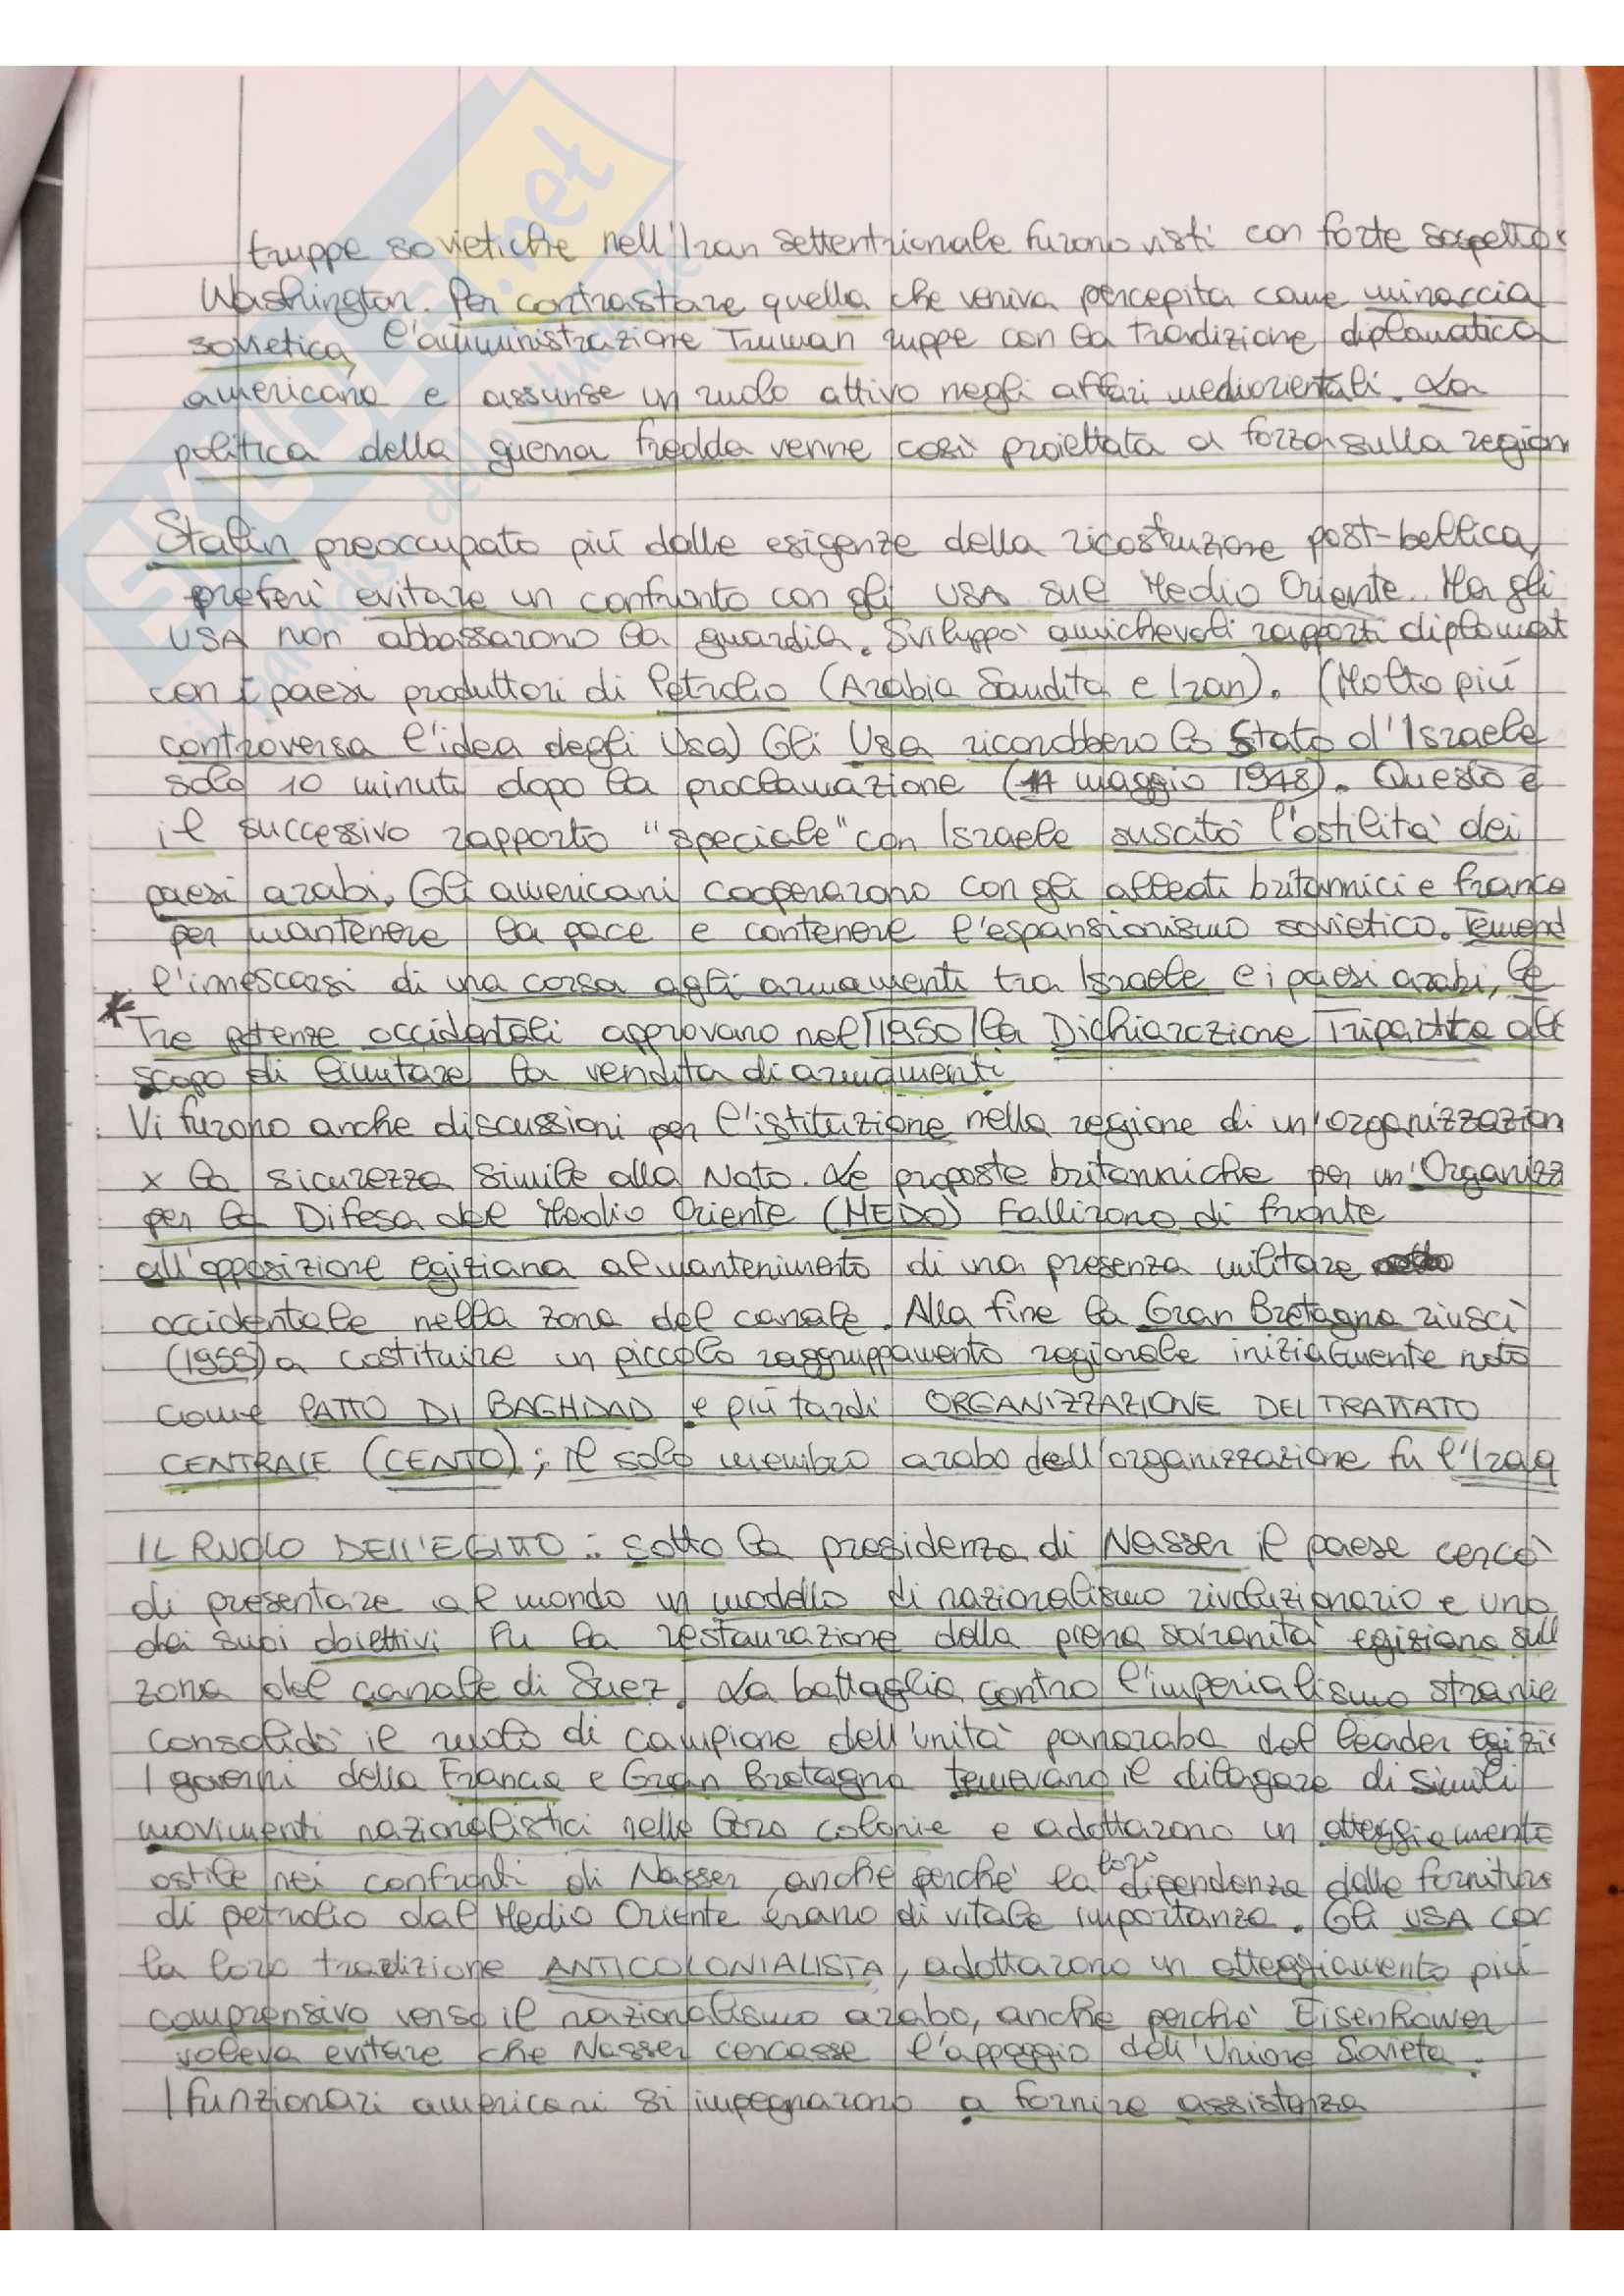 truppe sovietiche nell'Iran settentrionale furono visti con forte sospetto
Washington. Per contrastare quella che veniva percepita come minaccia
sovietica, l'amministrazione Truman ruppe con la tradizione diplomatica
americana e assunse un ruolo attivo negli affari mediorientali. La
politica della guerra fredda venne così proiettata a forza sulla region
Stalin preoccupato più dalle esigenze della ricostruzione post-bellica,
preferì evitare un confronto con gli USA sul Medio Oriente. Ma gli
USA non abbassarono la guardia. Sviluppò amichevoli rapporti diplomat
con i paesi produttori di Petrolio (Arabia Saudita e Iran). (Molto più
controversa l'idea degli Usa) Gli Usa riconobbero lo Stato d'Israele
solo 10 minuti dopo la proclamazione (14 maggio 1948). Questo e
il successivo rapporto "speciale" con Israele suscitò l'ostilità dei
paesi arabi. Gli americani cooperarono con gli alleati britannici e france
per mantenere la pace e contenere l'espansionismo sovietico. Temend
l'innescarsi di una corsa agli armamenti tra Israele e i paesi arabi, le
* Tre potenze occidentali approvano nel 1950 la Dichiarazione Tripartita all
scopo di limitare la vendita di armamenti.
Vi furono anche discussioni per l'istituzione nella regione di un'organizzazion
x la sicurezza simile alla Nato. Le proposte britanniche per un'Organizz
per la Difesa del Medio Oriente (MEDO) fallirono di fronte
all'opposizione egiziana al mantenimento di una presenza militare
occidentale nella zona del canale. Alla fine la Gran Bretagna riuscì
(1955) a costituire un piccolo raggruppamento regionale inizialmente noto
come PATTO DI BAGHDAD e più tardi ORGANIZZAZIONE DEL TRATTATO
CENTRALE (CENTO); il solo membro arabo dell'organizzazione fu l'Iraq
IL RUOLO DELL'EGITTO: sotto la presidenza di Nasser il paese cercò
di presentare al mondo un modello di nazionalismo rivoluzionario e uno
dei suoi obiettivi fu la restaurazione della piena sovranità egiziana sull
zona del canale di Suez. La battaglia contro l'imperialismo stranie
consolidò il ruolo di campione dell'unità panaraba del leader egizi
I governi della Francia e Gran Bretagna temevano il dilagare di simili
movimenti nazionalistici nelle loro colonie e adottarono un atteggiamento
ostile nei confronti di Nasser, anche perchè la loro dipendenza dalle forniture
di petrolio dal Medio Oriente erano di vitale importanza. Gli USA con
la loro tradizione ANTICOLONIALISTA, adottarono un atteggiamento più
comprensivo verso il nazionalismo arabo, anche perchè Eisenhower
voleva evitare che Nasser cercasse l'appoggio dell'Unione Sovieta.
I funzionari americani si impegnarono a fornire assistenza